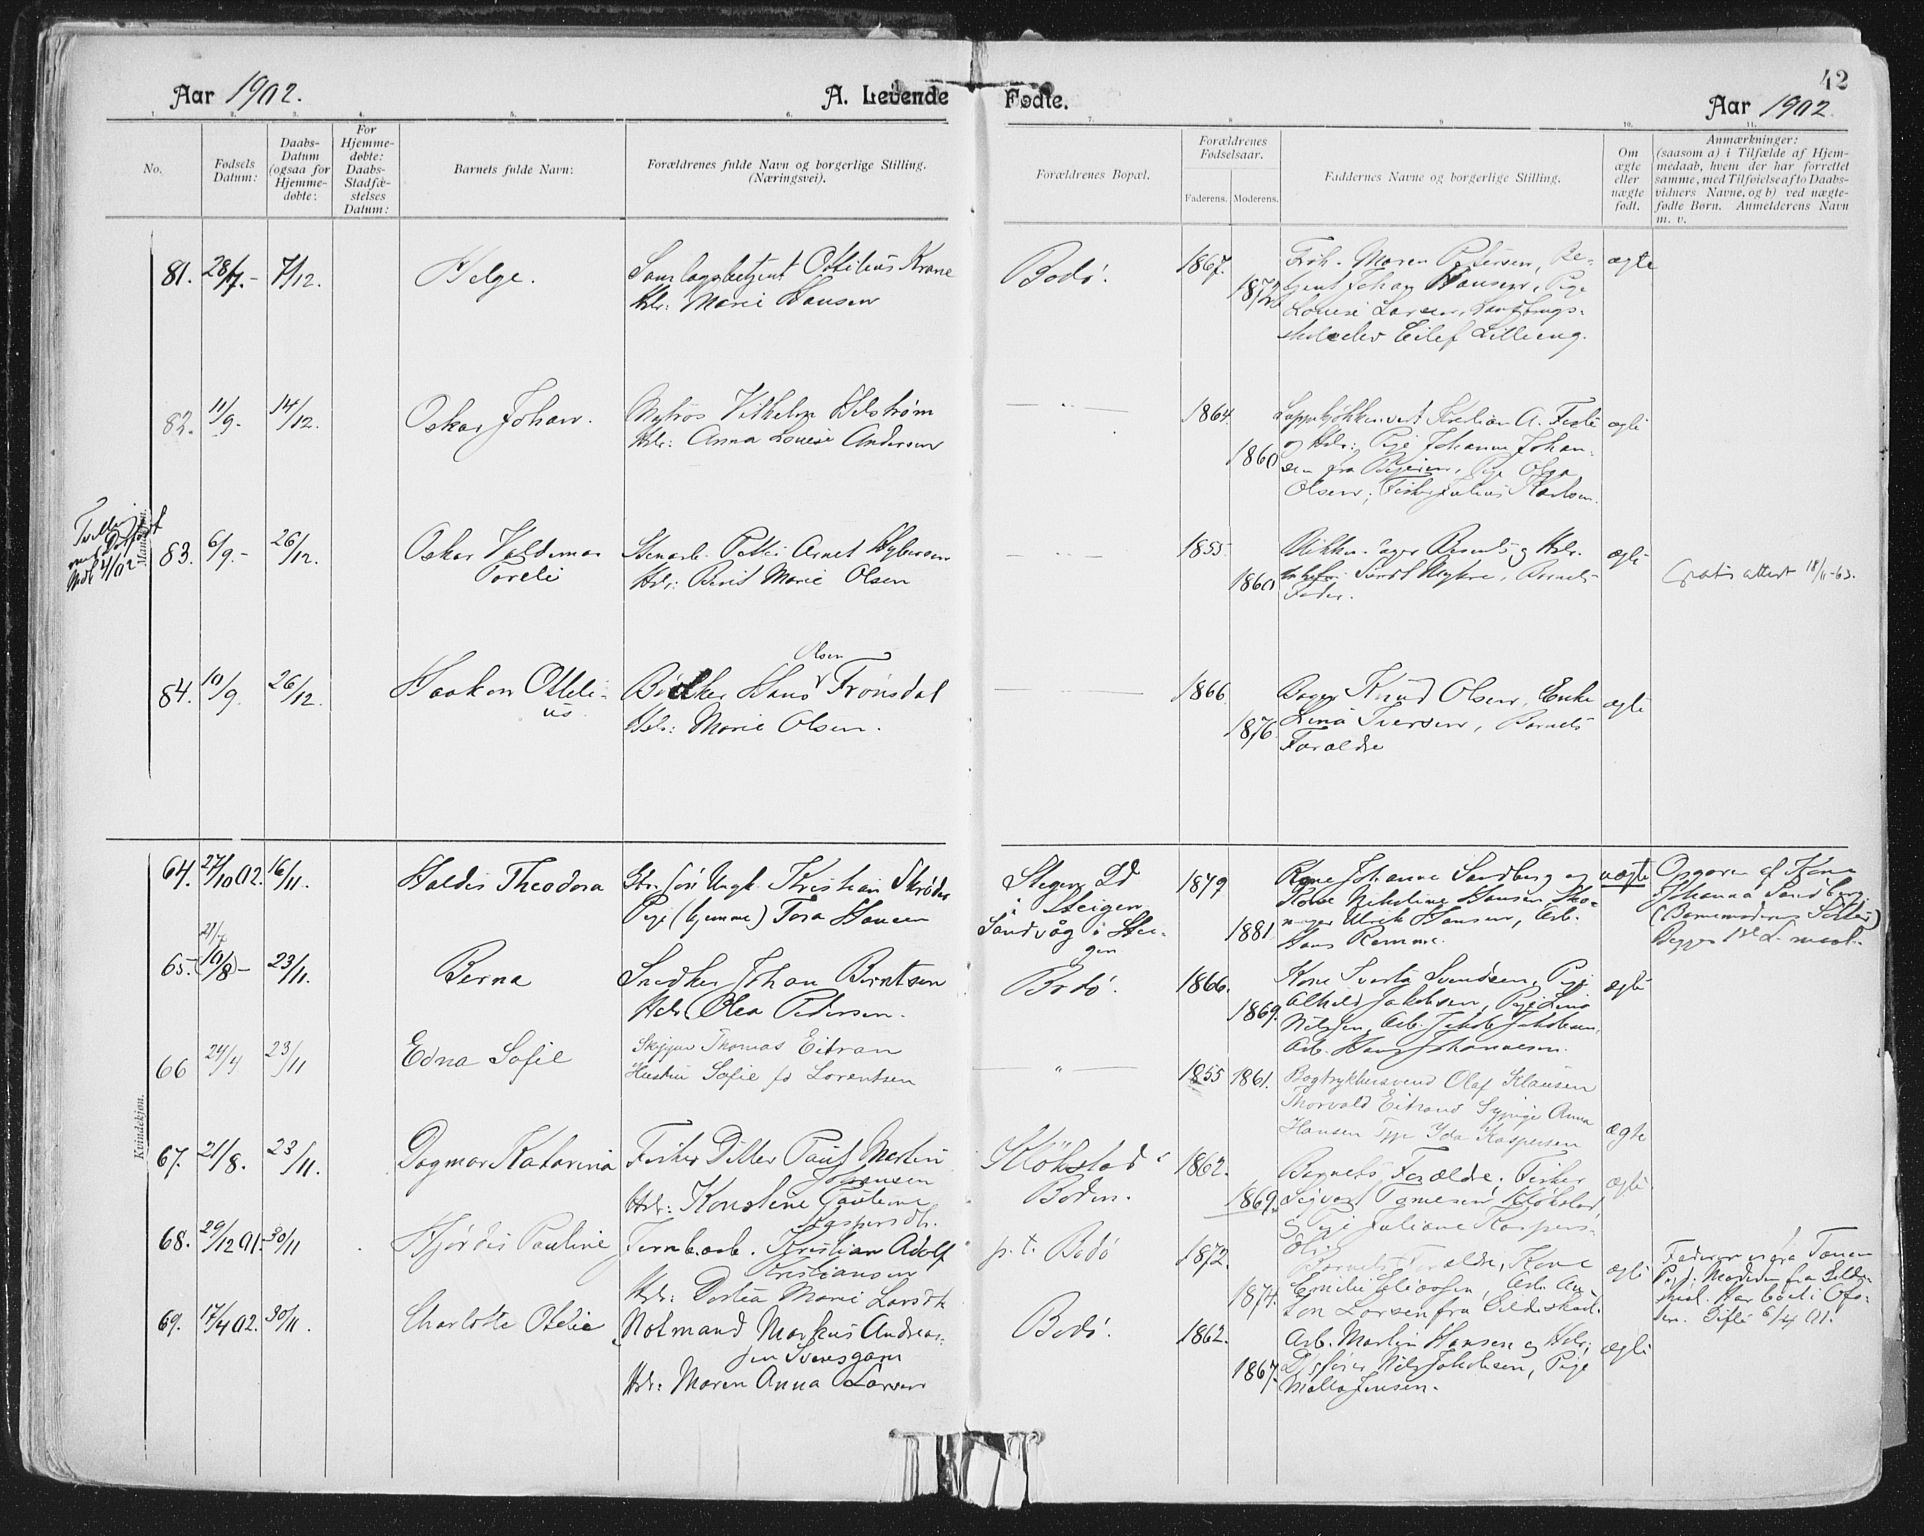 42
Aar 1902.
A. Levende Fødte.
Aar 1902.
1. 2. 3. 4. 5. 6. 7. 8 9 10. 11.
No.
Fødsels Datum:
Daabs-Datum (ogsaa for Hjemme-døbte:
For Hjemme-døbte: Daabs-Stadfæ-stelses Datum:
Barnets fulde Navn:
Forældrenes fulde Navn og borgerlige Stilling. (Næringsvei).
Forældrenes Bopæl.
Forældrenes Fødselsaar.
Faderens. Moderens.
Faddernes Navne og borgerlige Stilling.
Om ægte eller uægte født.
Anmærkninger: (saasom a) i Tilfælde af Hjem-medaab, hvem der har forrettet samme, med Tilføielse af to Daabs-vidners Navne, og b) ved uægte-fødte Børn. Anmelderens Navn m. v.
Mandkjøn.
81. 28/7.- 7/12. Helge.
Samlagsbetjent Ottilius Krane
Hstr: Marie Hansen
Bodø. 1867. 1872
Frk. Maren Petersen, Be-
tjent Johan Hansen, Pige
Lovise Larsen, Landbrugs-
skoleelev Eilef Lillieng.
ægte
82. 11/9. 14/12. Oskar Johan.
Vilhelm Helstrøm
Hstr: Anna Lovise Andersen
— " — 1864. 1860
Kristian A.
og Hstr; Pige Johanna Johan-
sen fra Pige Olga
Olsen, Julius Karlsen.
ægte
83. 6/9.- 26/12. Oskar Valdemar
Torelé
Stenarb. Petter Arnet
Hstr: Berit Marie Olsen
— " — 1855 1860
og Hstr.
Barnets
Fader.
ægte
Gratis attest 18/11-63.
84. 10/9. 26/12. Haakon Otteli-
us.
Olsen
Bødker Hans Trønsdal
Hstr: Marie Olsen.
— " — 1866 1876
Bager Knud Olsen, Enke
Lina Iversen, Barnets
Forældre
ægte
Kvindekjøn.
64. 27/10 02. 16/11. Haldis Theodora
Ungk. Kristian Skrøder
Pige (hjemme) Tora Hansen
Steigen Ld
i Steigen
Sandvåg i Stei-
gen
1879 1881
Kone Johanne Sandberg og
Kone Nikoline Hansen, Sko-
mager Ulrik Hansen, Arb.
Hans Ramme.
uægte
Opgaven af Kone
Johanna Sandberg
(Barnemoderens Søster)
Begges 1ste L. maal.
65. 21/7 (10/8)- 23/11. Berna
Snedker Johan Berntsen
Hstr. Olea Pedersen.
Bodø. 1866. 1869.
Kone Sverta Svendsen, Pige
Alhild Jakobsen, Pige Lina
Nilsen, Arb. Jakob Jakobsen,
Arb. Hans Johannesen.
ægte
66 24/4 23/11 Edna Sofie
Skipper Thomas Eitran
Hustru Sofie fd Lorentsen
— " — 1855 1861.
Bogtrykkersvend Olaf Klausen
Thorvald Eitrand Sypige Anna
Hansen Ida Kaspersen
ægte
67. 21/8. 23/11. Dagmar Katarina
Fisker Ditlev Paul Martin
Johansen
Hstr: Konstine Pauline
Kaspersdtr.
Kløkstad i
Bodin.
1862. 1869.
Barnets Forældre. Fisker
Sigvart Kløkstad,
og Pige Juliane Kaspers-
dtr.
ægte
68. 29/12 01. 30/11 Hjørdis Pauline
Jernb.arb. Kristian Adolf
Kristiansen
Hstr: Dortea Marie Larsdtr
p. t. Bodø 1872. 1874.
Barnets Forældre, Kone
Emilie Eliassen, Arb. An-
ton Larsen fra Gildeskaal.
ægte
Faderen er fra
Moderen fra Gildes-
kaal. Har boet i Ofo-
ten. Gifte 6/4 01.
69. 17/4 02. 30/11. Charlotte Otelie
Notmand Markus Andrea-
sen Svensgam
Hstr: Maren Anna Larsen
Bodø. 1862. 1867.
Arb. Martin Hansen og Hstr;
Nils Jakobsen, Pige
Malla Jensen.
ægte